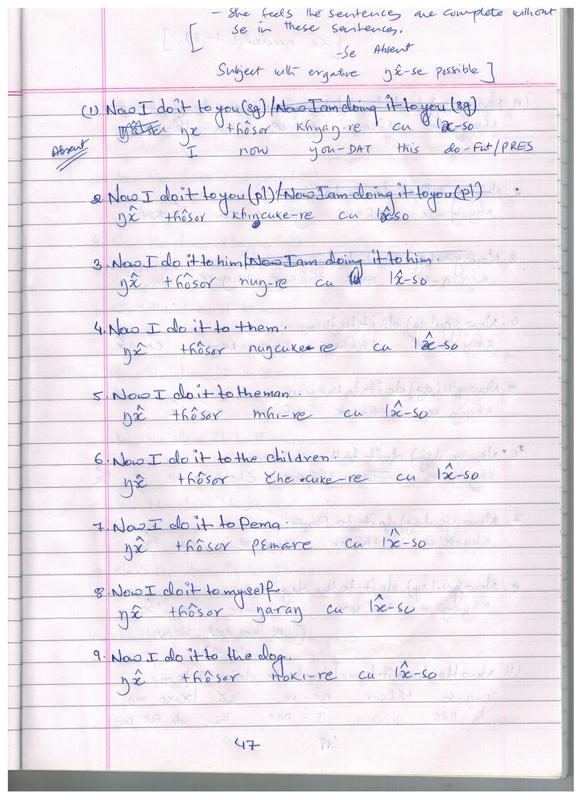 - She feels the sentences are complete without
se in these sentences.
-Se Absent
Subject with ergative ŋx̂-se possible]
(1) Now I do it to you(sg)/Now I am doing it to you (sg)
Absent ŋx thôsor khyaŋ-re cu lx-so
I now you-DAT this do-Fut/PRES
2. Now I do it to you(pl)/Now I am doing it to you(pl)
ŋx̂ thôsor khiŋcuke-re cu lx̂so
3. Now I do it to him/Now I am doing it to him.
ŋx̂ thôsor nuŋ-re cu lx̂-so
4. Now I do it to them.
ŋx̂ thôsor nuŋcuke-re cu lx̂-so
5. Now I do it to the man.
ŋx̂ thôsor mhi-re cu lx̂-so
6. Now I do it to the children.
ŋx̂ thôsor cuke-re cu lx̂-so
7. Now I do it to Pema.
ŋx̂ thôsor pemare cu lx̂-so
8. Now I do it to myself.
ŋx̂ thôsor ŋaraŋ cu lx̂-so
9. Now I do it to the dog.
ŋx̂ thôsor noki-re cu lx̂-so
47